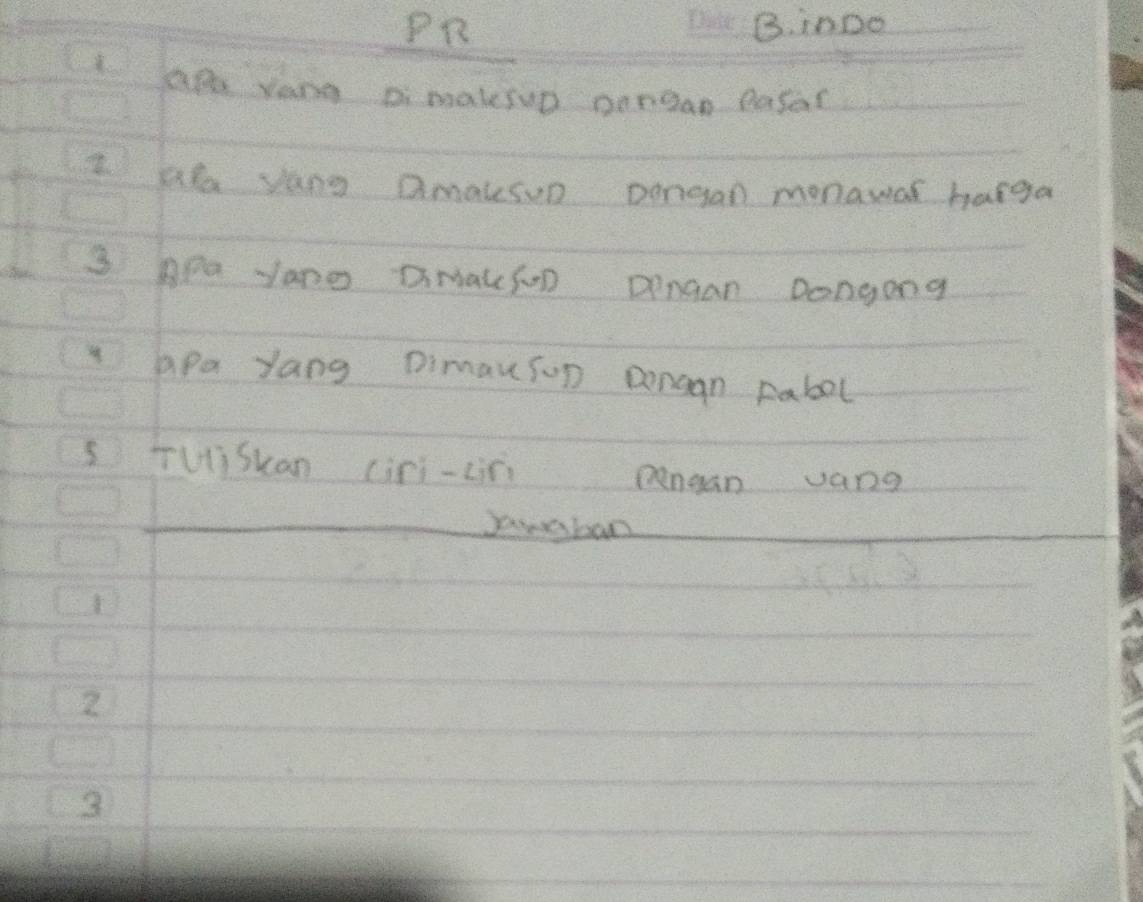 PR Date B.inDo
1 apa yang Di maksuD Dengan Pasar
2 apa yang DimaksuD Dengan menawar Harga
3 Apa yang DimaksuD Dengan Dongeng
4 apa yang DimaksuD Dengan Fabel
5 Tuliskan Ciri-Ciri Dengan uang
Jawaban
1
2
3